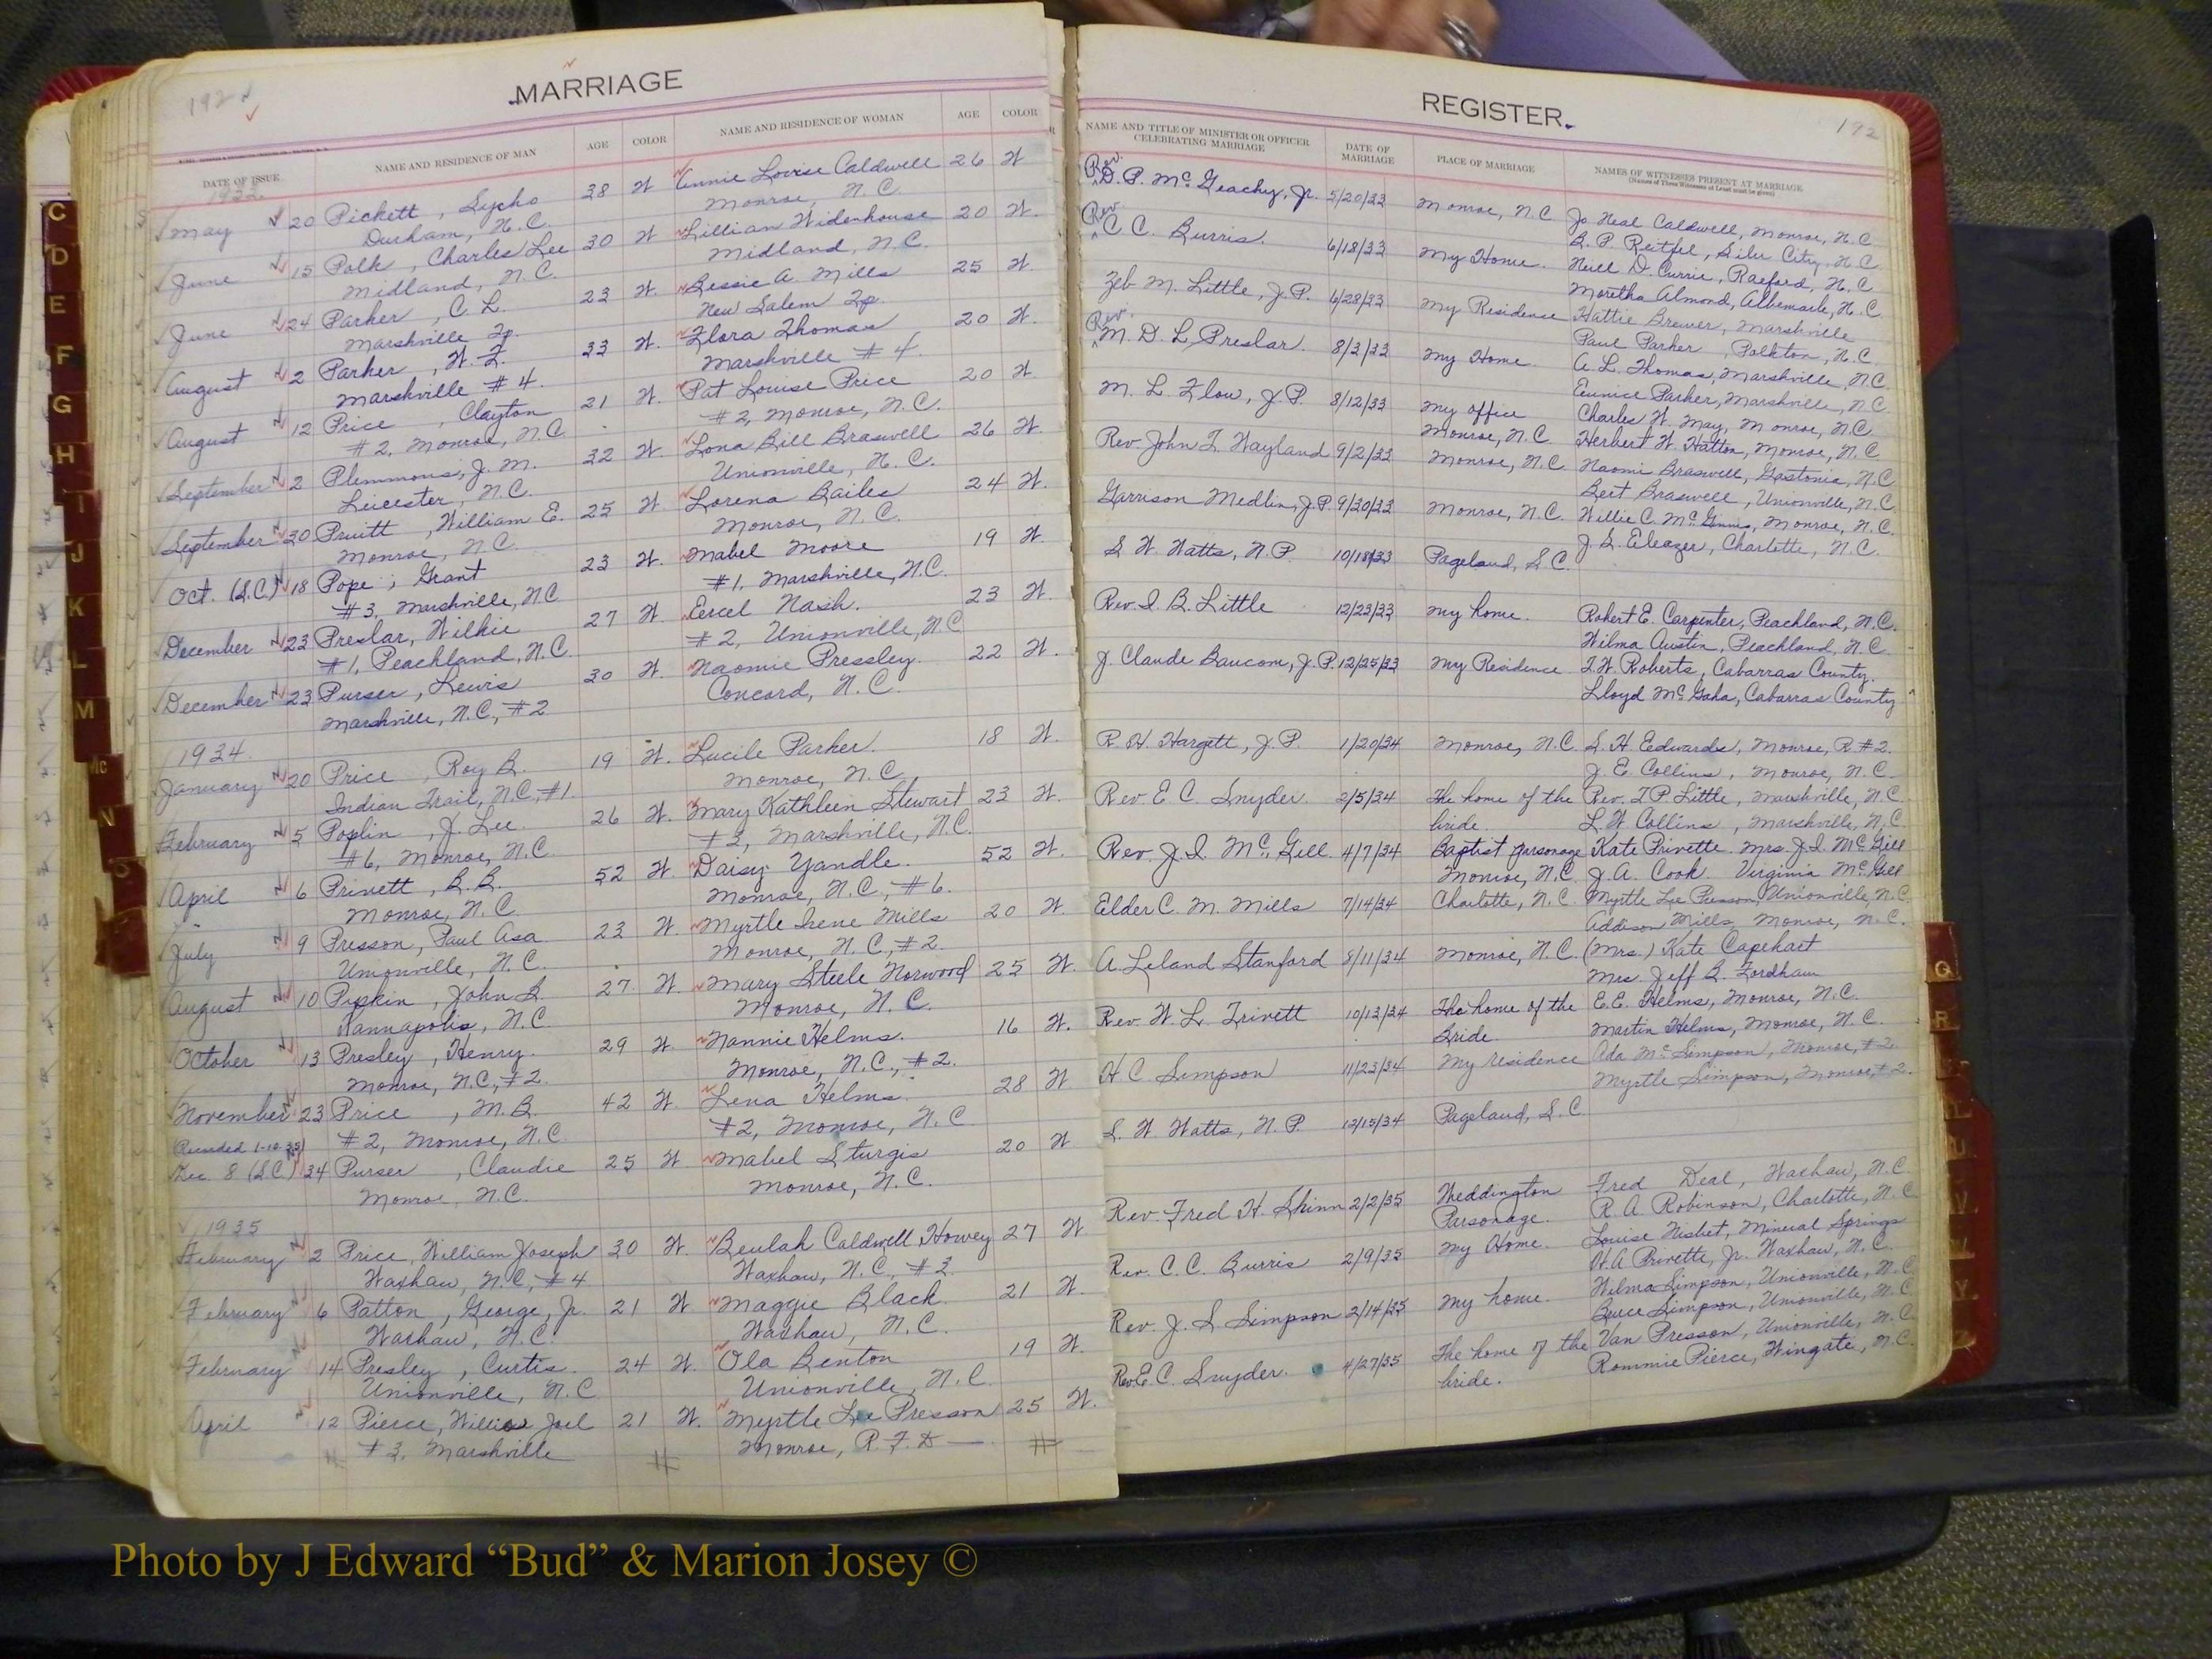 192
MARRIAGE
DATE OF ISSUE
NAME AND RESIDENCE OF MAN
AGE
COLOR
NAME AND RESIDENCE OF WOMAN
AGE
COLOR
1933
May 20 Pickett, Lycho 38 W Annie Louise Caldwell 26 W
Durham, N.C. Monroe, N.C.
June 15 Polk, Charles Lee 30 W Lillian Widenhouse 20 W.
Midland, N.C. Midland, N.C.
June 24 Parker, C. L. 23 W. Bessie A. Mills 25 W.
Marshville Tp. New Salem Tp.
August 2 Parker, W. Z. 33 W. Flora Thomas 20 W.
Marshville #4. Marshville #4
August 12 Price, Clayton 21 W. Pat Louise Price 20 W.
#2, Monroe, N.C. #2, Monroe, N.C.
September 2 Plemmons, J. M. 32 W. Lona Bell Braswell 26 W.
Leicester, N.C. Unionville, N.C.
September 30 Pruitt, William E. 25 W. Lorena Bailes 24 W.
Monroe, N.C. Monroe, N.C.
Oct. (S.C.) 18 Pope, Grant 23 W. Mabel Moore 19 W.
#3, Marshville, N.C. #1, Marshville, N.C.
December 23 Preslar, Wilkie 27 W. Eercel Nash. 23 W.
#1, Peachland, N.C. #2, Unionville, N.C.
December 23 Purser, Lewis 30 W. Naomie Pressley. 22 W.
Marshville, N.C., #2 Concord, N.C.
1934
January 20 Price, Roy B. 19 W. Lucile Parker. 18 W.
Indian Trail, N.C., #1. Monroe, N.C.
February 5 Poplin, J. Lee. 26 W. Mary Kathleen Stewart 23 W.
#6, Monroe, N.C. #2, Marshville, N.C.
April 6 Privett, B. B. 52 W. Daisy Yandle. 52 W.
Monroe, N.C. Monroe, N.C., #6.
July 9 Presson, Paul Asa 23 W. Myrtle Irene Mills 20 W.
Unionville, N.C. Monroe, N.C., #2.
August 10 Pipkin, John L. 27 W. Mary Steele Norwood 25 W.
Kannapolis, N.C. Monroe, N.C.
October 13 Presley, Henry. 29 W. Nannie Helms. 16 W.
Monroe, N.C., #2. Monroe, N.C., #2.
November 23 Price, M. B. 42 W. Lena Helms. 28 W
#2, Monroe, N.C. #2, Monroe, N.C.
Recorded 1-10-35
Dec. 8 (S.C.) 34 Purser, Claudie 25 W. Mabel Sturgis 20 W
Monroe, N.C. Monroe, N.C.
1935
February 2 Price, William Joseph 30 W. Beulah Caldwell Howey 27 W
Waxhaw, N.C., #4 Waxhaw, N.C., #3.
February 6 Patton, George, Jr. 21 W Maggie Black 21 W.
Waxhaw, N.C. Waxhaw, N.C.
February 14 Presley, Curtis. 24 W. Ola Benton 19 W.
Unionville, N.C. Unionville, N.C.
April 12 Pierce, Willis Joel 21 W. Myrtle Lee Presson 25 W.
#3, Marshville Monroe, R.F.D.
REGISTER.
192
NAME AND TITLE OF MINISTER OR OFFICER CELEBRATING MARRIAGE
DATE OF MARRIAGE
PLACE OF MARRIAGE
NAMES OF WITNESSES PRESENT AT MARRIAGE
(Names of Three Witnesses at Least must be given)
Rev. D. P. McGeachy, Jr. 5/20/33 Monroe, N.C. Jo Neal Caldwell, Monroe, N.C.
B. P. Reitfel, Siler City, N.C.
Neill D. Currie, Raeford, N.C.
Rev. C. C. Burris. 6/18/33 My Home. Moretha Almond, Albemarle, N.C.
Hattie Brewer, Marshville
Zeb M. Little, J.P. 6/28/33 My Residence Paul Parker, Polkton, N.C.
Rev. M. D. L. Preslar. 8/3/33 My Home. A. L. Thomas, Marshville, N.C.
Eunice Parker, Marshville, N.C.
M. L. Flow, J.P. 8/12/33 My office Charles W. May, Monroe, N.C.
Monroe, N.C. Herbert W. Hatton, Monroe, N.C.
Rev. John T. Wayland 9/2/33 Monroe, N.C. Naomi Braswell, Gastonia, N.C.
Bert Braswell, Unionville, N.C.
Garrison Medlin, J.P. 9/30/33 Monroe, N.C. Willie C. McGinnis, Monroe, N.C.
J. L. Eleazer, Charlotte, N.C.
S. W. Watts, N.P. 10/18/33 Pageland, S.C.
Rev. I. B. Little 12/23/33 My home. Robert E. Carpenter, Peachland, N.C.
Wilma Austin, Peachland, N.C.
J. Claude Baucom, J.P. 12/25/33 My Residence T. W. Roberts, Cabarras County.
Lloyd McGaha, Cabarras County
R. H. Hargett, J.P. 1/20/34 Monroe, N.C. S. H. Eedwards, Monroe, R #2.
J. E. Collins, Monroe, N.C.
Rev. E. C. Snyder. 2/5/34 The home of the Rev. T. P. Little, Marshville, N.C.
bride L. W. Collins, Marshville, N.C.
Rev. J. I. McGill. 4/7/34 Baptist parsonage Kate Privette. Mrs. J. I. McGill
Monroe, N.C. J. A. Cook. Virginia McGill
Elder C. M. Mills 7/14/34 Charlotte, N.C. Myrtle Lee Presson, Unionville, N.C.
Addison Mills, Monroe, N.C.
A. Leland Stanford 8/11/34 Monroe, N.C. (Mrs.) Kate Capehart
Mrs. Jeff B. Fordham
Rev. W. L. Trivett 10/13/34 The home of the E. E. Helms, Monroe, N.C.
Bride. Martin Helms, Monroe, N.C.
H. C. Simpson 11/23/34 My residence Ada Mc Simpson, Monroe, #2.
Myrtle Simpson, Monroe, #2.
S. W. Watts, N.P. 12/15/34 Pageland, S.C.
Rev. Fred H. Shinn 2/2/35 Weddington Fred Deal, Waxhaw, N.C.
Parsonage. R. A. Robinson, Charlotte, N.C.
Louise Nisbet, Mineral Springs
Rev. C. C. Burris 2/9/35 My Home. H. A. Privette, Jr. Waxhaw, N.C.
Wilma Simpson, Unionville, N.C.
Rev. J. S. Simpson 2/14/35 My home. Bruce Simpson, Unionville, N.C.
Rev. E. C. Snyder. 4/27/35 The home of the Van Presson, Unionville, N.C.
bride. Rommie Pierce, Wingate, N.C.
C
D
E
F
G
H
I
J
K
L
M
Mc
N
O
Q
R
U
V
Y
Photo by J Edward “Bud” & Marion Josey ©